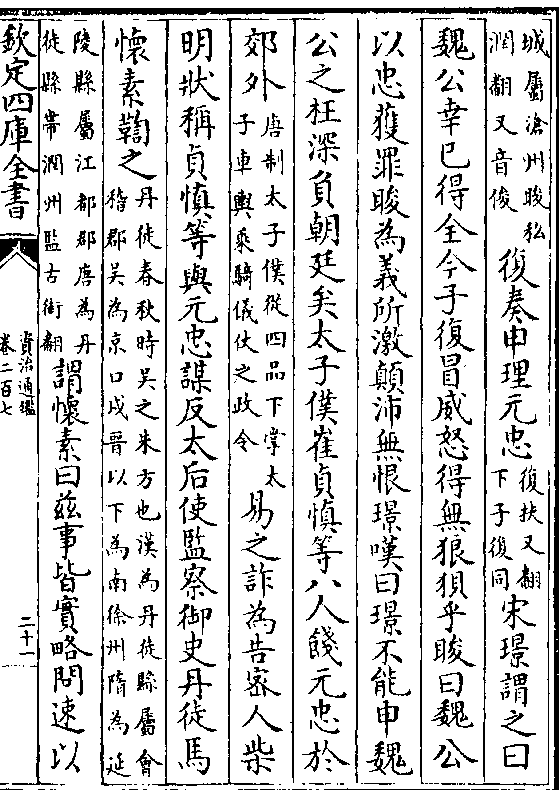 城屬滄州晙私
潤翻又音俊
復奏申理元忠
復扶又翻
下子復同
宋璟謂之曰
魏公幸已得全今子復冒威怒得無狼狽乎晙曰魏公
以忠獲罪晙為義所激顛沛無恨璟嘆曰璟不能申魏
公之枉深負朝廷矣太子僕崔貞慎等八人餞元忠於
郊外
唐制太子僕從四品下掌太
子車輿乘騎儀仗之政令
易之詐為告密人柴
明狀稱貞慎等與元忠謀反太后使監察御史丹徒馬
懷素鞫之
丹徒春秋時吳之朱方也漢為丹徒縣屬會
稽郡吳為京口戍晉以下為南徐州隋為延
陵縣屬江都郡唐為丹
徒縣帶潤州監古銜翻
謂懷素曰兹事皆實略問速以
欽定四庫全書
資治通鑑
卷二百七
二十一